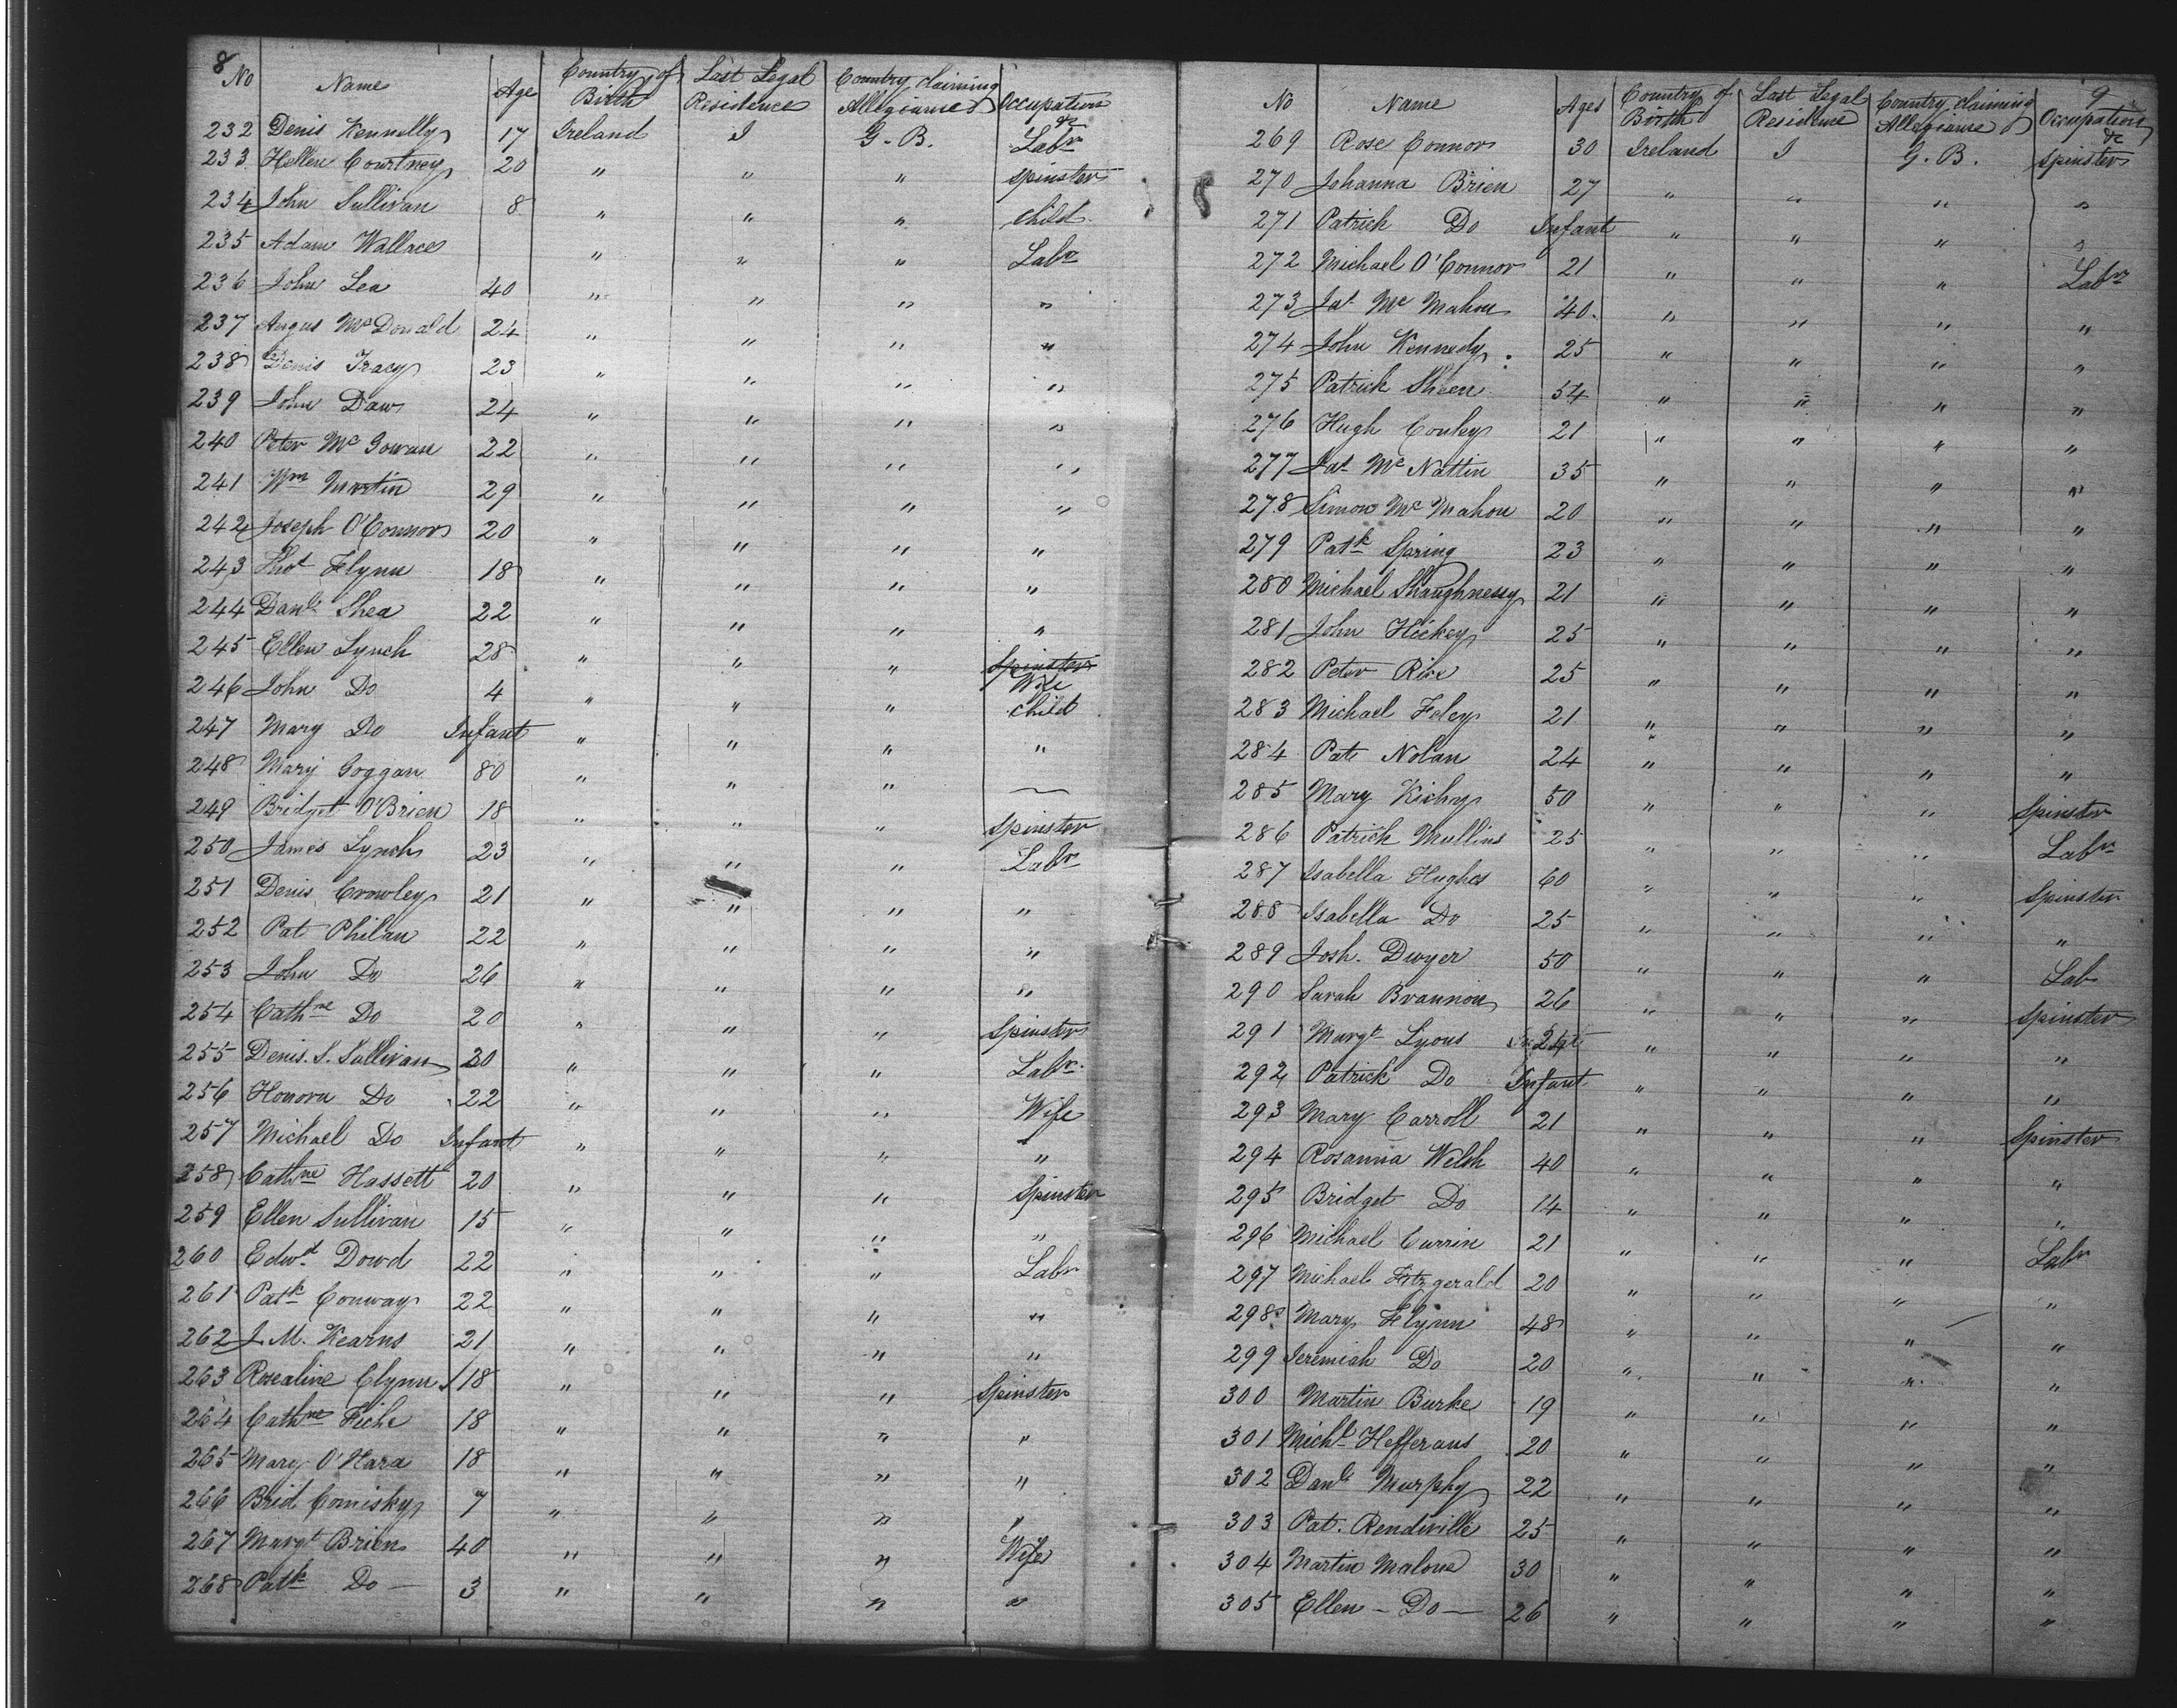 8
No Name Age Country of Birth Last Legal Residence Country claiming Allegiance Occupation &c
232 Denis Kennelly 17 Ireland I G. B. Labr
233 Hellen Courtney 20 " " " Spinster
234 John Sullivan 8 " " " Child
235 Adam Wallace " " " Labr
236 John Lea 40 " " " "
237 Angus McDonald 24 " " " "
238 Denis Tracy 23 " " " "
239 John Daw 24 " " " "
240 Peter McGowan 22 " " " "
241 Wm Martin 29 " " " "
242 Joseph O'Connor 20 " " " "
243 Thos Flynn 18 " " " "
244 Danl Shea 22 " " " "
245 Ellen Lynch 28 " " " Spinster Wife
246 John Do 4 " " " Child
247 Mary Do Infant " " " "
248 Mary Goggan 80 " " " —
249 Bridget O'Brien 18 " " " Spinster
250 James Lynch 23 " " " Labr
251 Denis Crowley 21 " " " "
252 Pat Philan 22 " " " "
253 John Do 26 " " " "
254 Cathne Do 20 " " " Spinster
255 Denis. S. Sullivan 20 " " " Labr
256 Honora Do 22 " " " Wife
257 Michael Do Infant " " " "
258 Cathne Hassett 20 " " " Spinster
259 Ellen Sullivan 15 " " " "
260 Edwd Dowd 22 " " " Labr
261 Patk Conway 22 " " " "
262 J. M. Kearns 21 " " " "
263 Rosealine Clynn 18 " " " Spinster
264 Cathne 18 " " " "
265 Mary O'Hara 18 " " " "
266 Brid Comisky 7 " " " "
267 Margt Brien 40 " " " Wife
268 Patk Do — 3 " " " "
9
No Name Ages Country of Birth Last Legal Residence Country claiming Allegiance Occupation &c
269 Rose Connor 30 Ireland I G. B. Spinster
270 Johanna Brien 27 " " " "
271 Patrick Do Infant " " " "
272 Michael O'Connor 21 " " " Labr
273 Jas McMahon 40 " " " "
274 John Kennedy 25 " " " "
275 Patrick Sheen 54 " " " "
276 Hugh Conley 21 " " " "
277 Jas McNattin 35 " " " "
278 Simon McMahon 20 " " " "
279 Patk Spring 23 " " " "
280 Michael Shaughnessy 21 " " " "
281 John Hickey 25 " " " "
282 Peter Rice 25 " " " "
283 Michael Foley 21 " " " "
284 Pat Nolan 24 " " " "
285 Mary 50 " " " Spinster
286 Patrick Mullins 25 " " " Labr
287 Isabella Hughes 60 " " " Spinster
288 Isabella Do 25 " " " "
289 Josh. Dwyer 50 " " " Lab
290 Sarah Brannion 26 " " " Spinster
291 Margt Lyons 24 " " " "
292 Patrick Do Infant " " " "
293 Mary Carroll 21 " " " Spinster
294 Rosanna Welsh 40 " " " "
295 Bridget Do 14 " " " "
296 Michael Currin 21 " " " Labr
297 Michael Fitzgerald 20 " " " "
298 Mary Flynn 48 " " " "
299 Jeremiah Do 20 " " " "
300 Martin Burke 19 " " " "
301 Michl Hefferans 20 " " " "
302 Danl Murphy 22 " " " "
303 Pat. Rendiville 25 " " " "
304 Martin Malone 30 " " " "
305 Ellen — Do — 26 " " " "